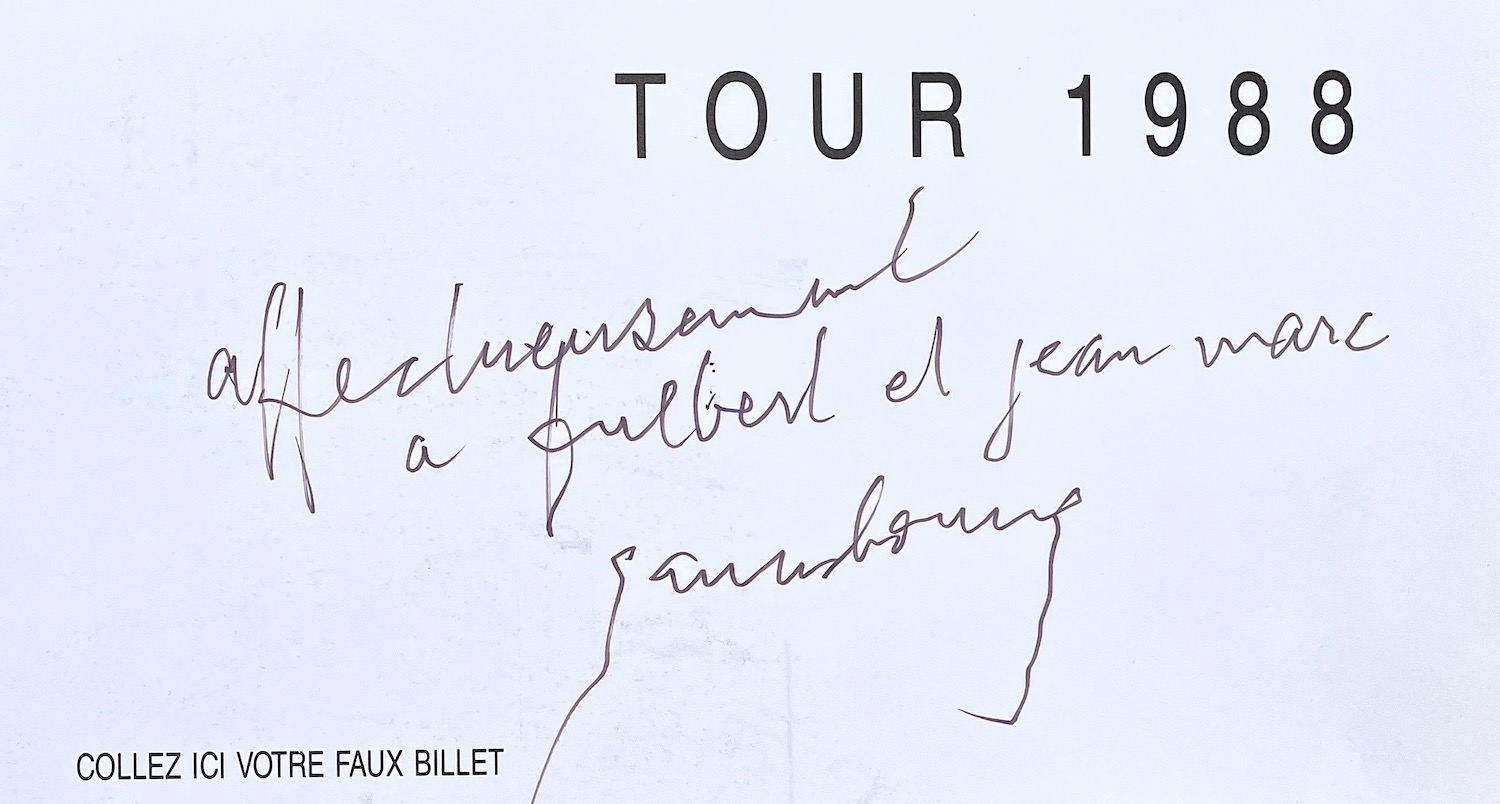 TOUR 1988
affectueusement
a fulbert et jean marc
gainsbourg
COLLEZ ICI VOTRE FAUX BILLET